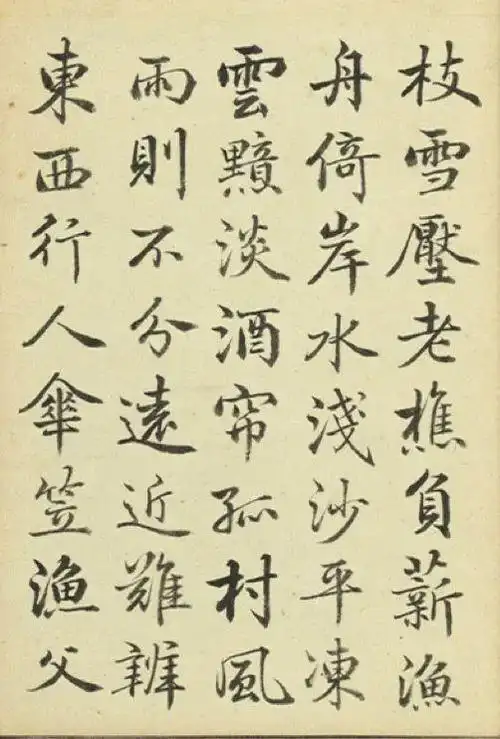 枝雪壓老樵負薪漁
舟倚岸水淺沙平凍
雲黯淡酒帘孤村風
雨則不分遠近難辨
東西行人傘笠漁父